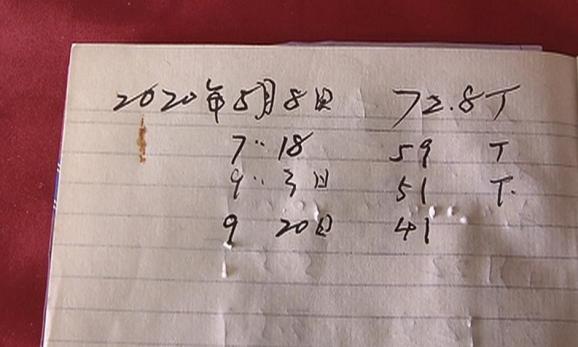 2020年5月8日 72.8T
7·· 18 59 T
9·· 3日 51 T.
9 20日 41